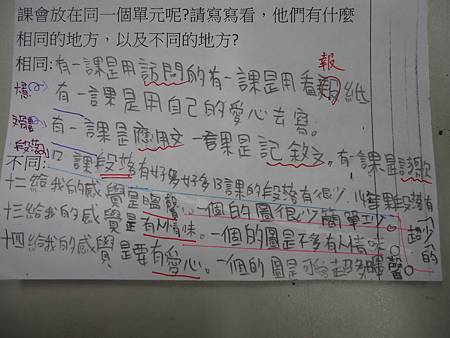 課會放在同一個單元呢?請寫寫看，他們有什麼
相同的地方，以及不同的地方?
報
相同:有一課是用訪問的有一課是用看紙
有一課是用自己的愛心去寫。
有一課是應用文一課是記敘文。有一課是詩歌
段落
不同:12課段落有好多好多13課的段落有很少.14課段落有一少的
十二給我的感覺是聲。一個的圖很少簡單
十三給我的感覺是有人情味。一個的圖是不多有人情味
十四給我的感覺是要有愛心。一個的圖是超多聲。